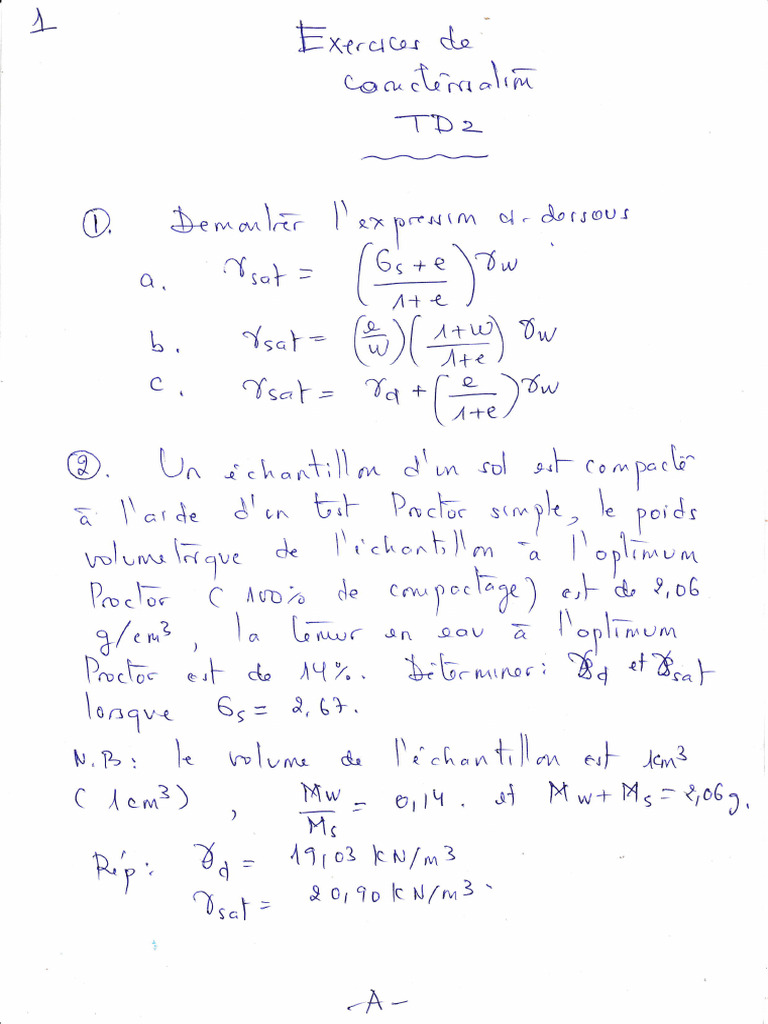 1
Exercices de
caractérisation
TD2
①. Demontrer l'expression ci-dessous
a. γsat = (Gs + e / 1 + e) γw
b. γsat = (e/w) (1+w / 1+e) γw
c. γsat = γd + (e / 1+e) γw
②. Un échantillon d'un sol est compacté
à l'aide d'un test Proctor simple, le poids
volumetrique de l'échantillon à l'optimum
Proctor (100% de compactage) est de 2,06
g/cm³, la teneur en eau à l'optimum
Proctor est de 14%. Déterminer: γd et γsat
lorsque Gs = 2,67.
N.B: le volume de l'échantillon est 1cm³
(1cm³), Mw/Ms = 0,14. et Mw + Ms = 2,06g.
Rép: γd = 19,03 KN/m3
γsat = 20,90 KN/m3.
-A-